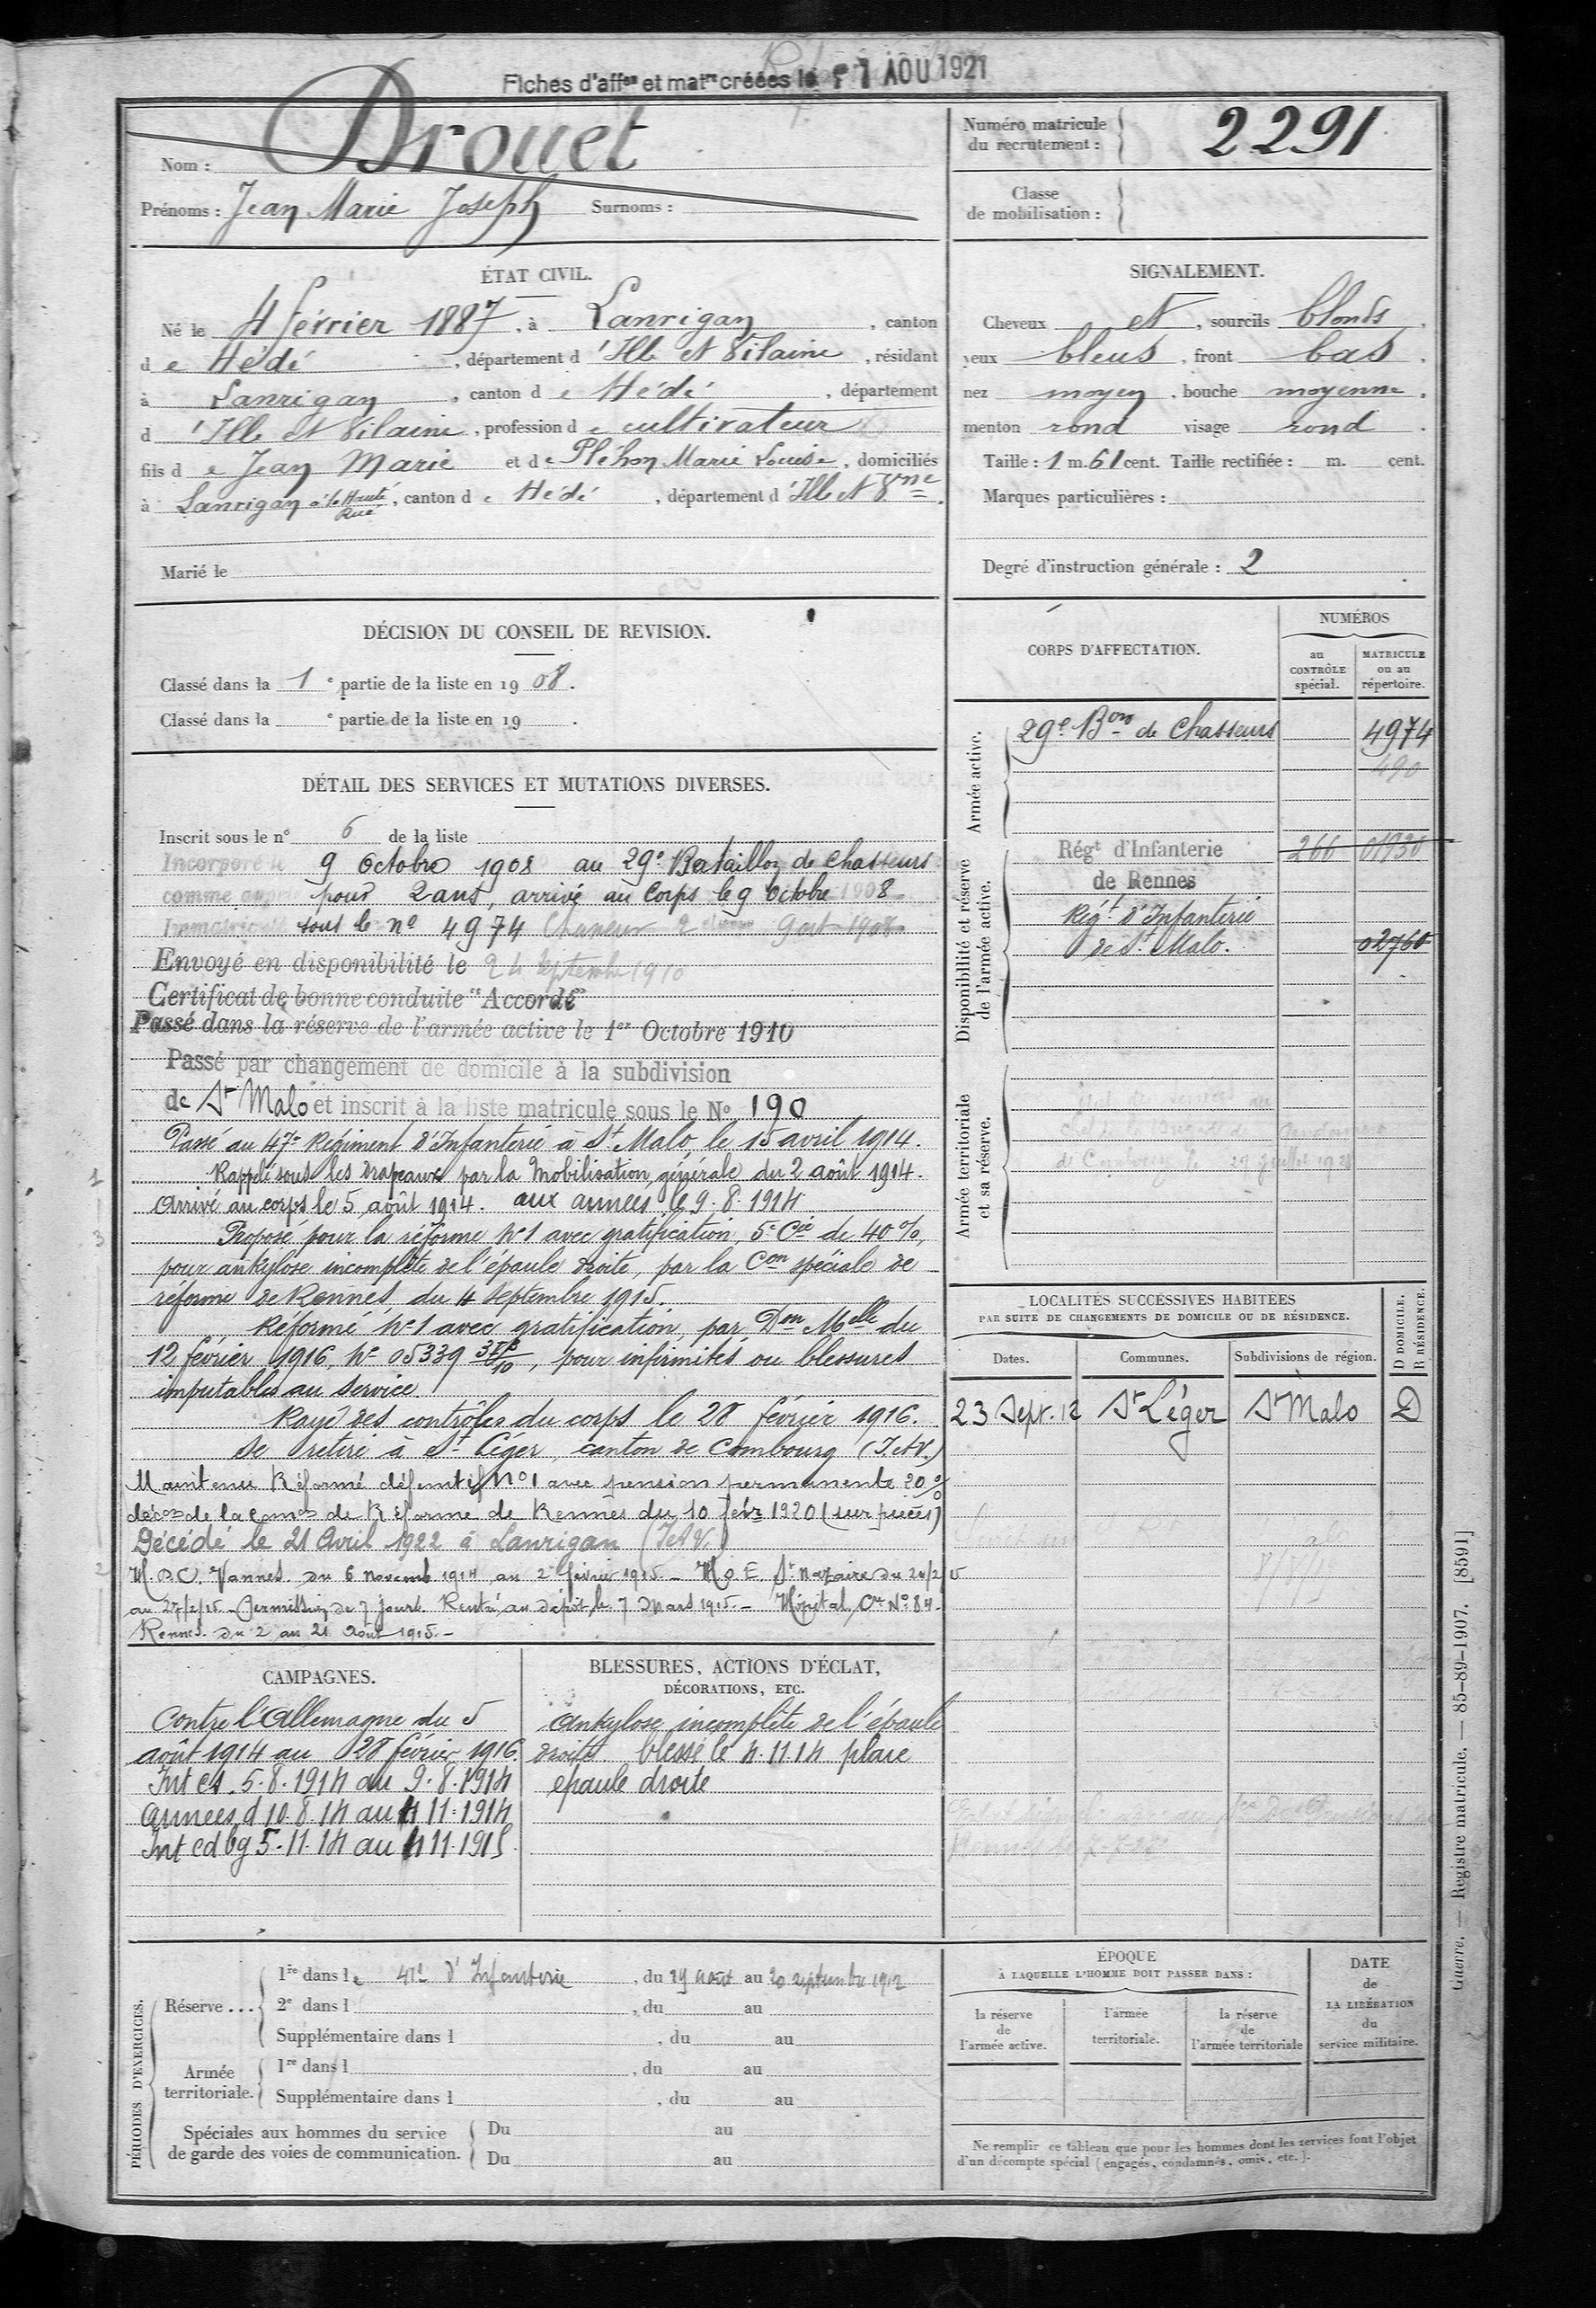 Fiches d'aff^on et mat^re créées le 1 AOU 1921
Nom : Drouet
Prénoms : Jean Marie Joseph Surnoms :
Numéro matricule du recrutement : 2291
Classe de mobilisation :
ÉTAT CIVIL.
Né le 4 février 1887, à Lanrigan, canton
de Hédé, département d'Ille et Vilaine, résidant
à Lanrigan, canton de Hédé, département
d'Ille et Vilaine, profession de cultivateur
fils de Jean Marie et de Pléhon Marie Louise, domiciliés
à Lanrigan à la Haute Rue, canton de Hédé, département d'Ille et Vne.
Marié le
SIGNALEMENT.
Cheveux et, sourcils blonds,
yeux bleus, front bas,
nez moyen, bouche moyenne,
menton rond visage rond.
Taille : 1 m. 61 cent. Taille rectifiée : m. cent.
Marques particulières :
Degré d'instruction générale : 2
DÉCISION DU CONSEIL DE REVISION.
Classé dans la 1^e partie de la liste en 1908.
Classé dans la ^e partie de la liste en 19 .
DÉTAIL DES SERVICES ET MUTATIONS DIVERSES.
Inscrit sous le n° 6 de la liste
Incorporé le 9 Octobre 1908 au 29e Bataillon de Chasseurs
comme appelé pour 2 ans, arrivé au Corps le 9 octobre 1908
Immatriculé sous le n° 4974 Chasseur 2 classe 9 oct 1908
Envoyé en disponibilité le 24 septembre 1910
Certificat de bonne conduite "Accordé"
Passé dans la réserve de l'armée active le 1er Octobre 1910
Passé par changement de domicile à la subdivision
de St Malo et inscrit à la liste matricule sous le No 190
Passé au 47e Régiment d'Infanterie à St Malo, le 15 avril 1914.
1 Rappelé sous les Drapeaux par la Mobilisation générale du 2 août 1914.
Arrivé au corps le 5 août 1914. aux armées le 9.8.1914
3 Proposé pour la réforme N°1 avec gratification, 5e Cie de 40%,
pour ankylose incomplète de l'épaule droite, par la Con spéciale de
réforme de Rennes, du 4 Septembre 1915.
Réformé N°1 avec gratification, par Don Melle du
12 février 1916, N° 05339, pour infirmités ou blessures
imputables au service
Rayé des contrôles du corps le 28 février 1916.
Se retire à St Léger, canton de Combourg (I.et V.)
Maintenu Réformé définitif N°1 avec pension permanente 20%
décon de la comon de Réforme de Rennes du 10 févr 1920 (sur pièces)
Décédé le 21 Avril 1922 à Lanrigan (I et V.)
2 Vannes du 6 novemb 1914 au 2 février 1915 - St Nazaire du 20/2/15
au 27/2/15 - Permission de 7 jours. Rentré au dépôt le 7 Mars 1915 - Hôpital Cre N° 84.
Rennes. du 2 au 21 Août 1915.-
CORPS D'AFFECTATION.
NUMÉROS
au CONTRÔLE spécial.
MATRICULE ou au répertoire.
Armée active.
29e Bon de Chasseurs 4974
490
Disponibilité et réserve de l'armée active.
Régt d'Infanterie 266 01930
de Rennes
Régt d'Infanterie
de St Malo. 02760
Armée territoriale et sa réserve.
de Combourg le 29 Juillet 19
LOCALITÉS SUCCESSIVES HABITÉES
PAR SUITE DE CHANGEMENTS DE DOMICILE OU DE RÉSIDENCE.
D DOMICILE.
R RÉSIDENCE.
Dates. Communes. Subdivisions de région.
23 Sept. 12 St Léger St Malo D
CAMPAGNES.
Contre l'Allemagne du 5
août 1914 au 28 février 1916.
Int es. 5.8.1914 au 9.8.1914
Armées d 10.8.14 au 4 11.1914
Int cd bg 5.11.14 au 4 11.1915
BLESSURES, ACTIONS D'ÉCLAT,
DÉCORATIONS, ETC.
Ankylose incomplète de l'épaule
droite blessé le 4.11.14 plaie
épaule droite
PÉRIODES D'EXERCICES.
Réserve ...
1re dans le 41e d'Infanterie, du 29 août au 20 septembre 1912
2e dans l , du au
Supplémentaire dans l , du au
Armée territoriale.
1re dans l , du au
Supplémentaire dans l , du au
Spéciales aux hommes du service de garde des voies de communication.
Du au
Du au
ÉPOQUE
À LAQUELLE L'HOMME DOIT PASSER DANS :
la réserve de l'armée active.
l'armée territoriale.
la réserve de l'armée territoriale
DATE de LA LIBÉRATION du service militaire.
Ne remplir ce tableau que pour les hommes dont les services font l'objet
d'un décompte spécial (engagés, condamnés, omis, etc.).
Guerre. — Registre matricule. — 85-89-1907. [8591]